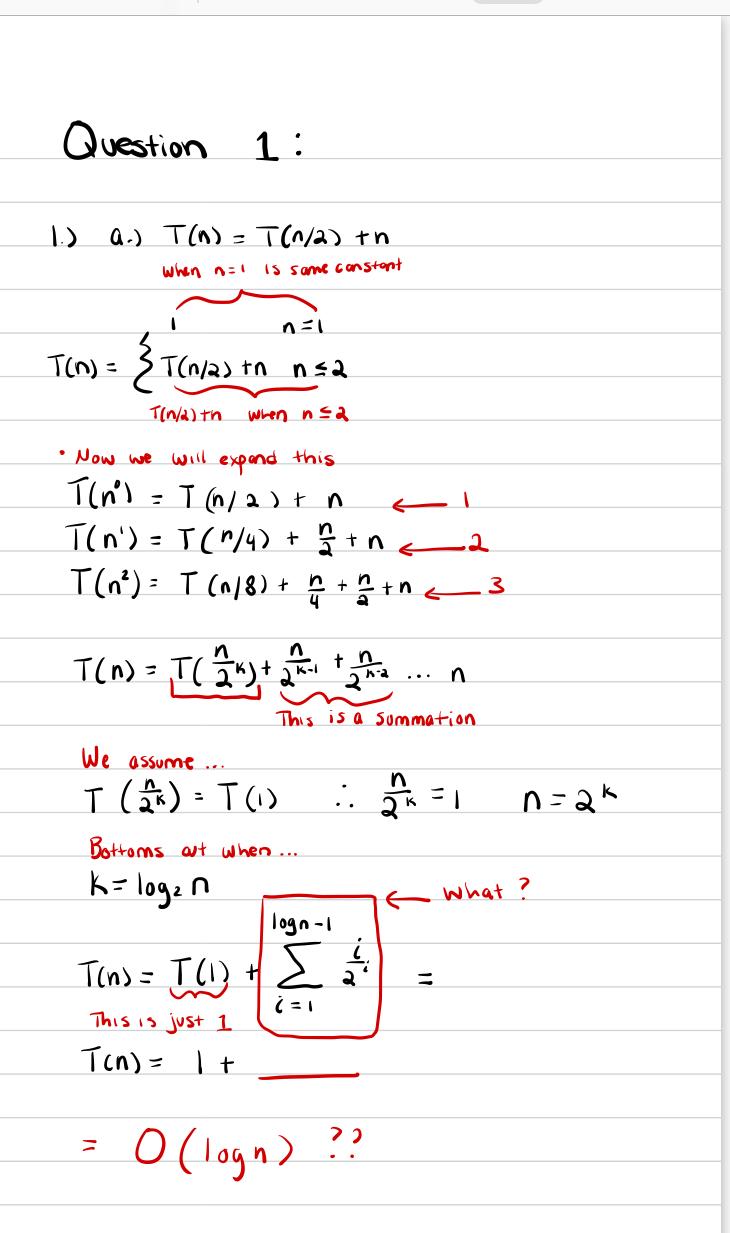 Question 1:
1.) a.) T(n) = T(n/2) + n
when n=1 is some constant
1 n=1
T(n) = { T(n/2) + n n ≤ 2
T(n/2) + n when n ≤ 2
• Now we will expand this
T(n⁰) = T(n/2) + n ← 1
T(n¹) = T(n/4) + n/2 + n ← 2
T(n²) = T(n/8) + n/4 + n/2 + n ← 3
T(n) = T(n/2^k) + n/2^(k-1) + n/2^(k-2) ... n
This is a summation
We assume ...
T(n/2^k) = T(1) ∴ n/2^k = 1 n = 2^k
Bottoms out when ...
k = log₂ n
← What?
T(n) = T(1) + Σ_{i=1}^{log n - 1} i/2^i =
This is just 1
T(n) = 1 + ____
= O(log n) ??